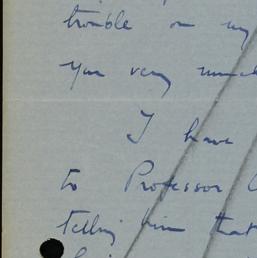 trouble on my
you very much
I have
to Professor
telling him that